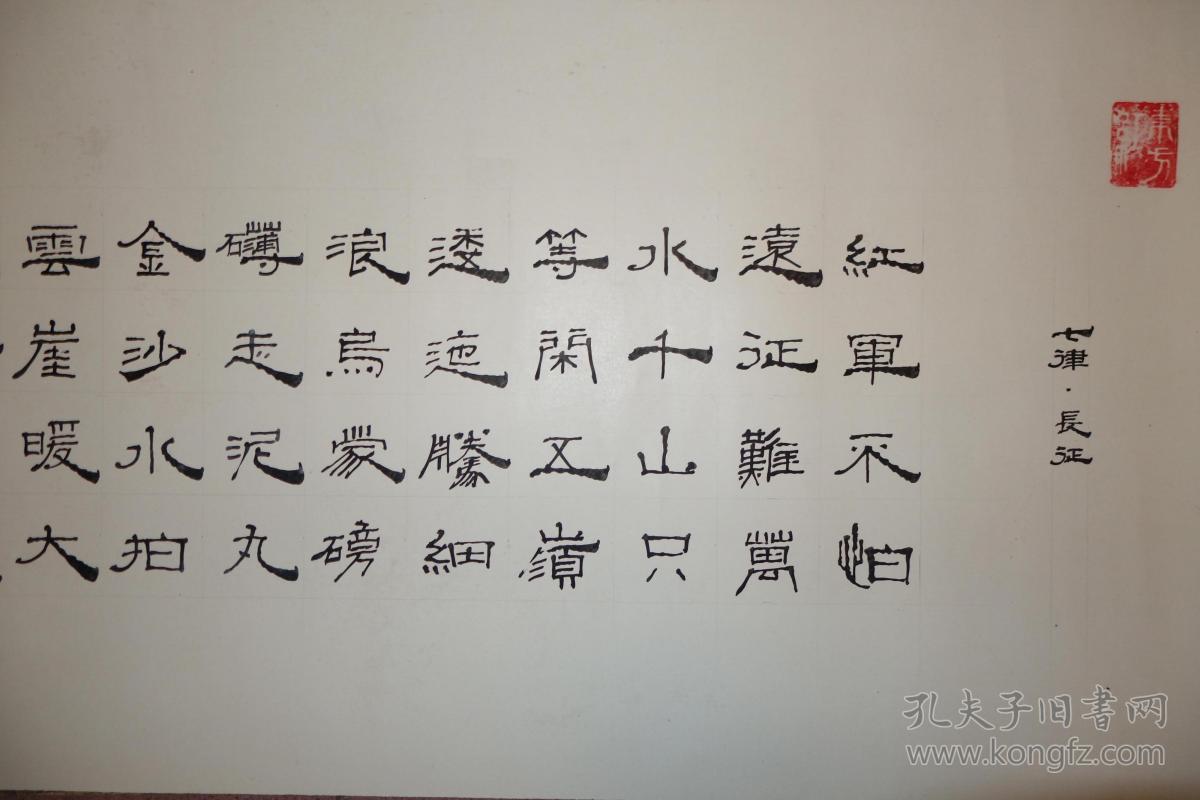 七律·長征
紅軍不怕
遠征難萬
水千山只
等閑五嶺
逶迤騰細
浪烏蒙磅
礴走泥丸
金沙水拍
雲崖暖大
孔夫子旧書网
www.kongfz.com